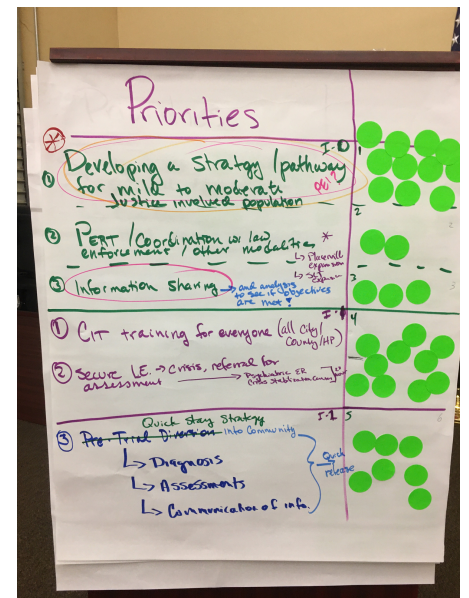 Priorities
I-0 1
① Developing a Strategy/pathway
for mild to moderate
Justice involved population
2
② PERT/Coordination w/ law *
enforcement/other modalities
↳ Placerville
expansion
↳ SLT
expansion
③ Information Sharing → and analysis
to see if objectives
are met!
3
4
① CIT training for everyone (all City/
County/HP)
② Secure L.E. → Crisis, referral for
assessment → Psychiatric ER
Crisis Stabilization
Quick Stay Strategy I-2 5
③ Pre-Trial Diversion into Community
↳ Diagnosis
↳ Assessments
↳ Communication of info.
→ Quick
release